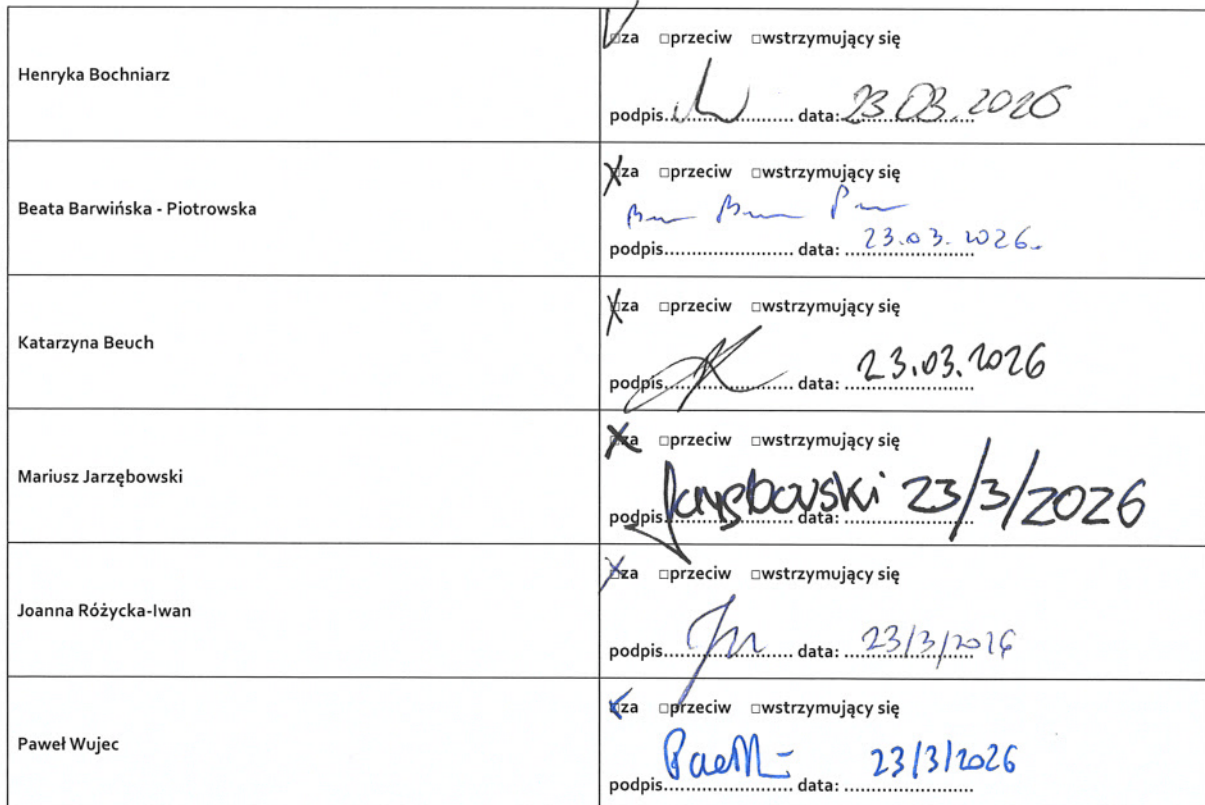 Henryka Bochniarz
□za □przeciw □wstrzymujący się
podpis...................... data: 23.03.2026
Beata Barwińska - Piotrowska
□za □przeciw □wstrzymujący się
podpis...................... data: 23.03.2026.
Katarzyna Beuch
□za □przeciw □wstrzymujący się
podpis...................... data: 23.03.2026
Mariusz Jarzębowski
□za □przeciw □wstrzymujący się
podpis...................... data: 23/3/2026
Joanna Różycka-Iwan
□za □przeciw □wstrzymujący się
podpis...................... data: 23/3/2026
Paweł Wujec
□za □przeciw □wstrzymujący się
podpis...................... data: 23/3/2026